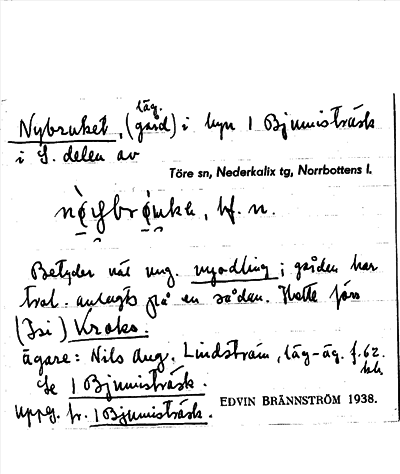 läg.
Nybruket, (gård) i byn 1 Bjumisträsk
i S. delen av
Töre sn, Nederkalix tg, Norrbottens l.
bf. n.
Betyder väl ung. nyodling; gården har
trol. anlagts på en sådan. Hette förr
(Isi) Kroks.
ägare: Nils Aug. Lindström, läg-äg. f. 62.
Se 1 Bjumisträsk.
uppg. fr. 1 Bjumisträsk.
EDVIN BRÄNNSTRÖM 1938.